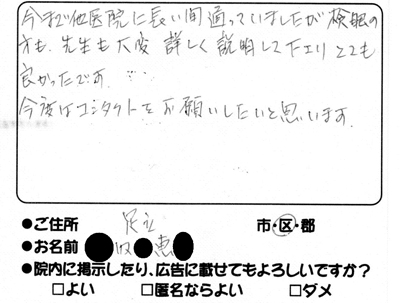 今まで他医院に長い間通っていましたが検眼の
方も、先生も大変詳しく説明して下さりとても
良かったです。
今度はコンタクトをお願いしたいと思います。
●ご住所 足立 市・区・郡
●お名前 恵
●院内に掲示したり、広告に載せてもよろしいですか？
□よい □匿名ならよい □ダメ